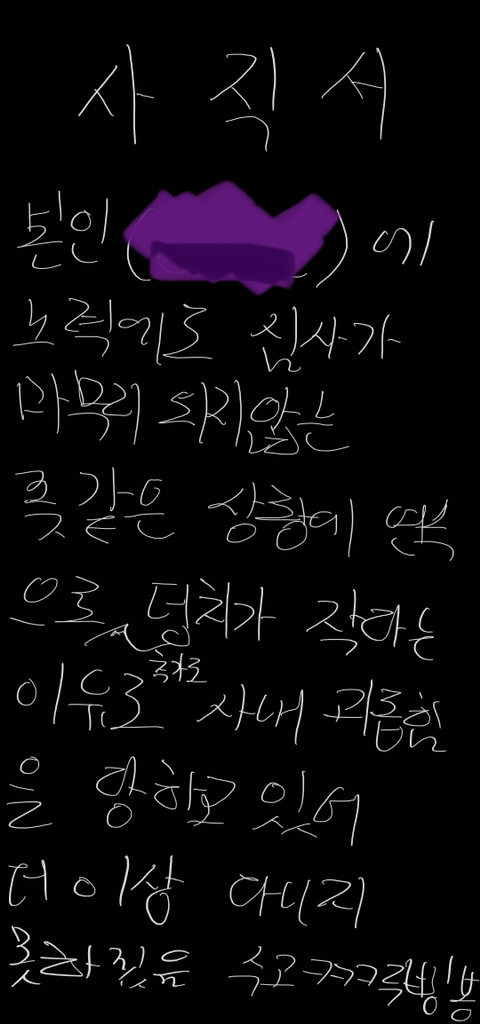 사직서
본인 ( ) 에
노력에도 심사가
마무리 되지않는
좆같은 상황이 연속
으로, 덩치가 작다는
이유로 추가로 사내 괴롭힘
을 당하고 있어
더 이상 다니지
못하겠음 수고ㅋㅋㅋ빙봉